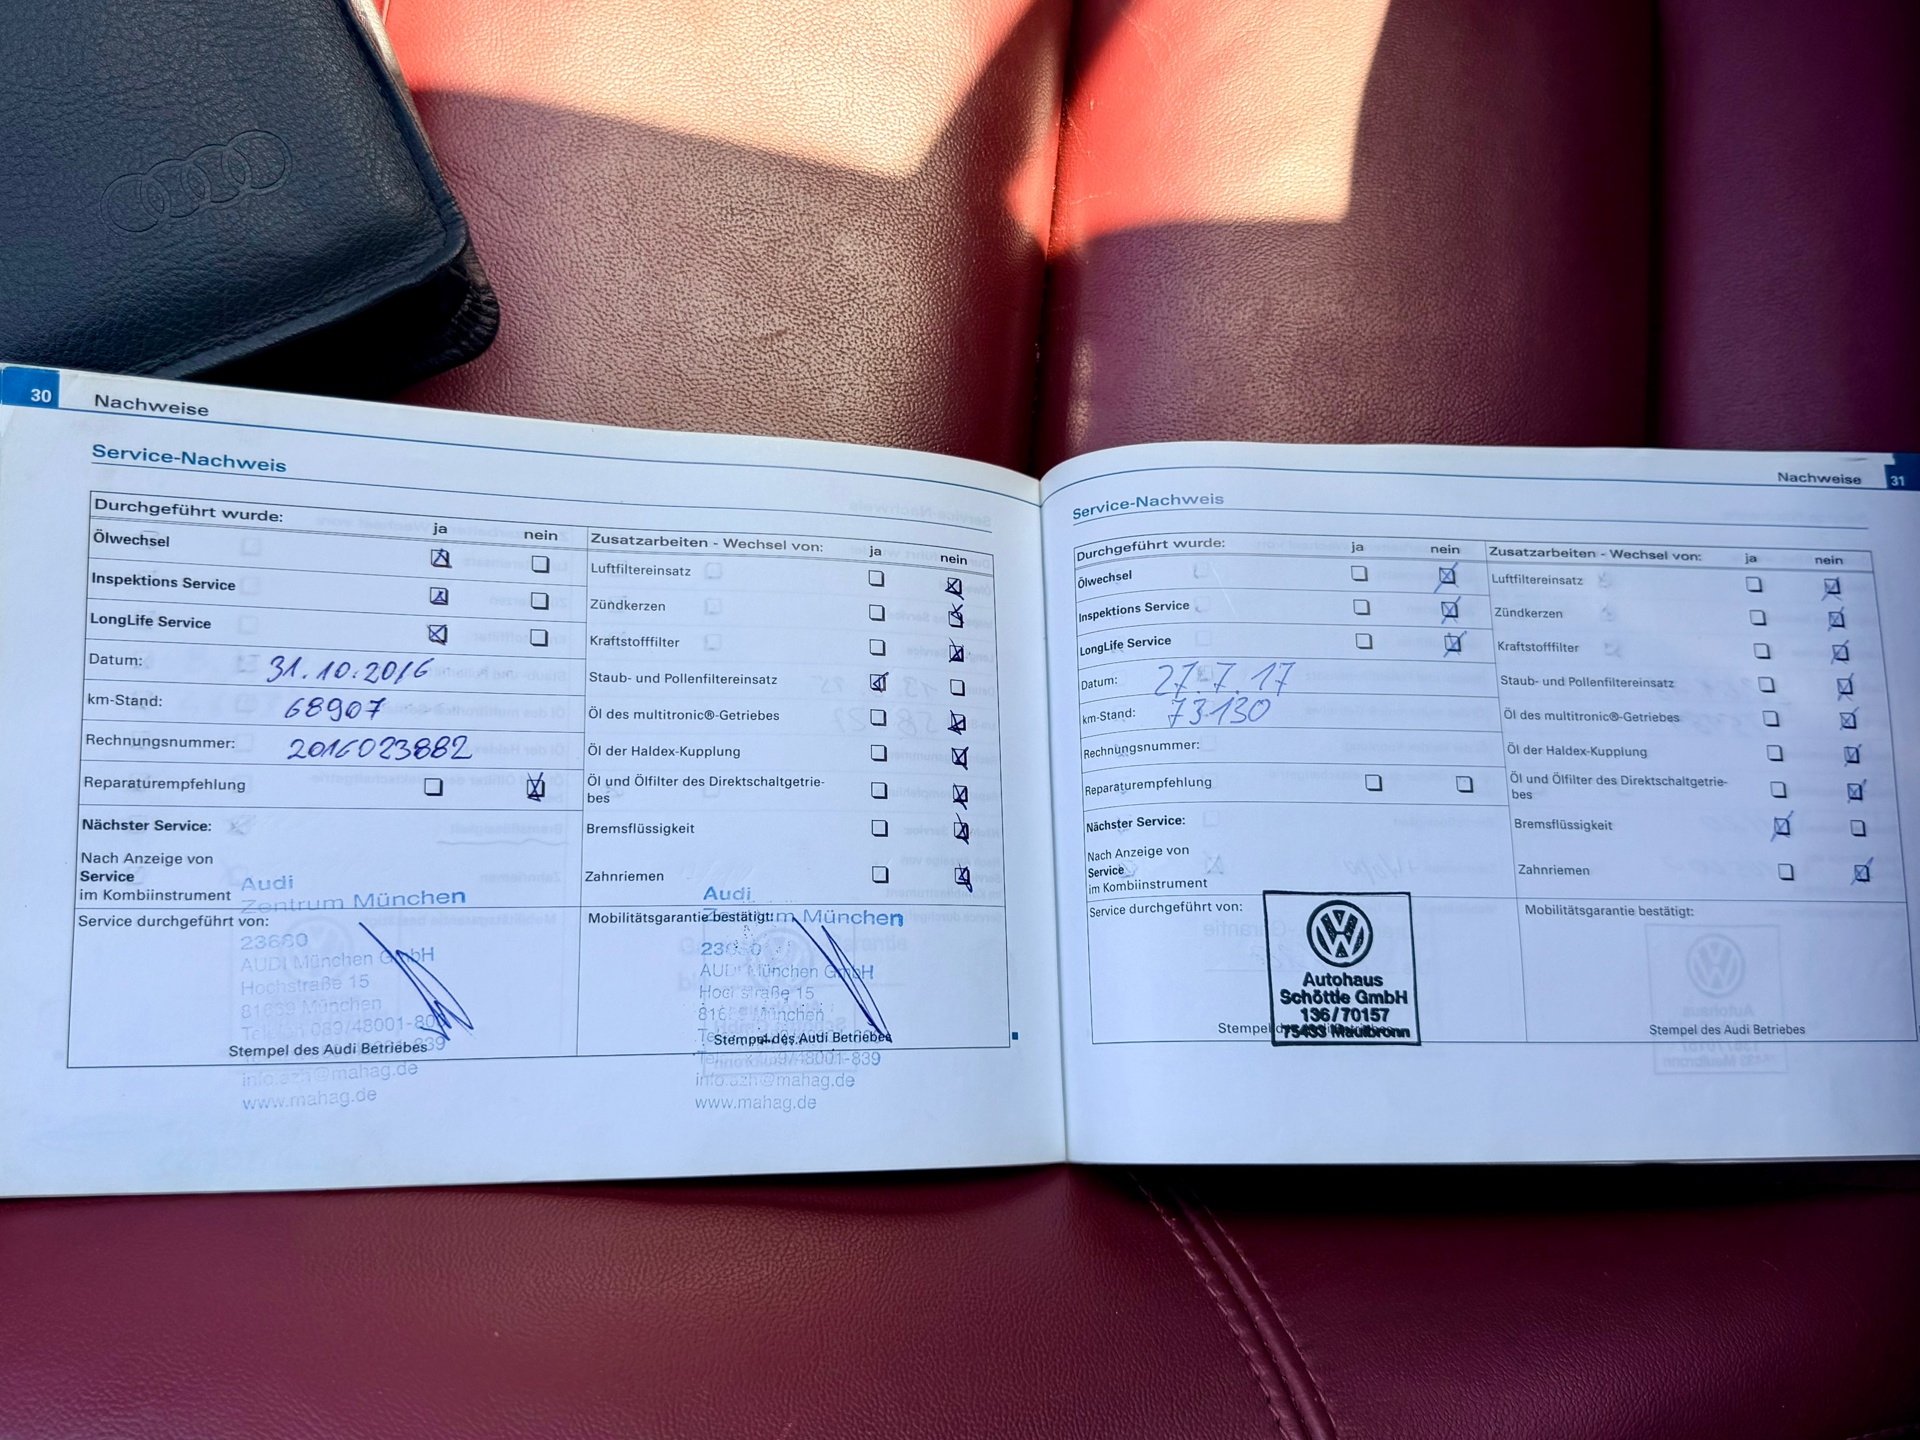 30 Nachweise
Service-Nachweis
Durchgeführt wurde:
ja nein
Ölwechsel
Inspektions Service
LongLife Service
Datum: 31.10.2016
km-Stand: 68907
Rechnungsnummer: 2016023882
Reparaturempfehlung
Nächster Service:
Nach Anzeige von
Service
im Kombiinstrument
Zusatzarbeiten - Wechsel von: ja nein
Luftfiltereinsatz
Zündkerzen
Kraftstofffilter
Staub- und Pollenfiltereinsatz
Öl des multitronic®-Getriebes
Öl der Haldex-Kupplung
Öl und Ölfilter des Direktschaltgetrie-
bes
Bremsflüssigkeit
Zahnriemen
Service durchgeführt von:
Audi
Zentrum München
23680
AUDI München GmbH
Hochstraße 15
81639 München
Telefon 089/48001-800
Stempel des Audi Betriebes
info.azh@mahag.de
www.mahag.de
Mobilitätsgarantie bestätigt:
Audi
Zentrum München
AUDI München GmbH
Hochstraße 15
München
Stempel des Audi Betriebes
48001-839
info.azh@mahag.de
www.mahag.de
Nachweise 31
Service-Nachweis
Durchgeführt wurde:
ja nein
Ölwechsel
Inspektions Service
LongLife Service
Datum: 27.7.17
km-Stand: 73130
Rechnungsnummer:
Reparaturempfehlung
Nächster Service:
Nach Anzeige von
Service
im Kombiinstrument
Zusatzarbeiten - Wechsel von: ja nein
Luftfiltereinsatz
Zündkerzen
Kraftstofffilter
Staub- und Pollenfiltereinsatz
Öl des multitronic®-Getriebes
Öl der Haldex-Kupplung
Öl und Ölfilter des Direktschaltgetrie-
bes
Bremsflüssigkeit
Zahnriemen
Service durchgeführt von:
Autohaus
Schöttle GmbH
136/70157
75433 Maulbronn
Stempel
Mobilitätsgarantie bestätigt:
Stempel des Audi Betriebes